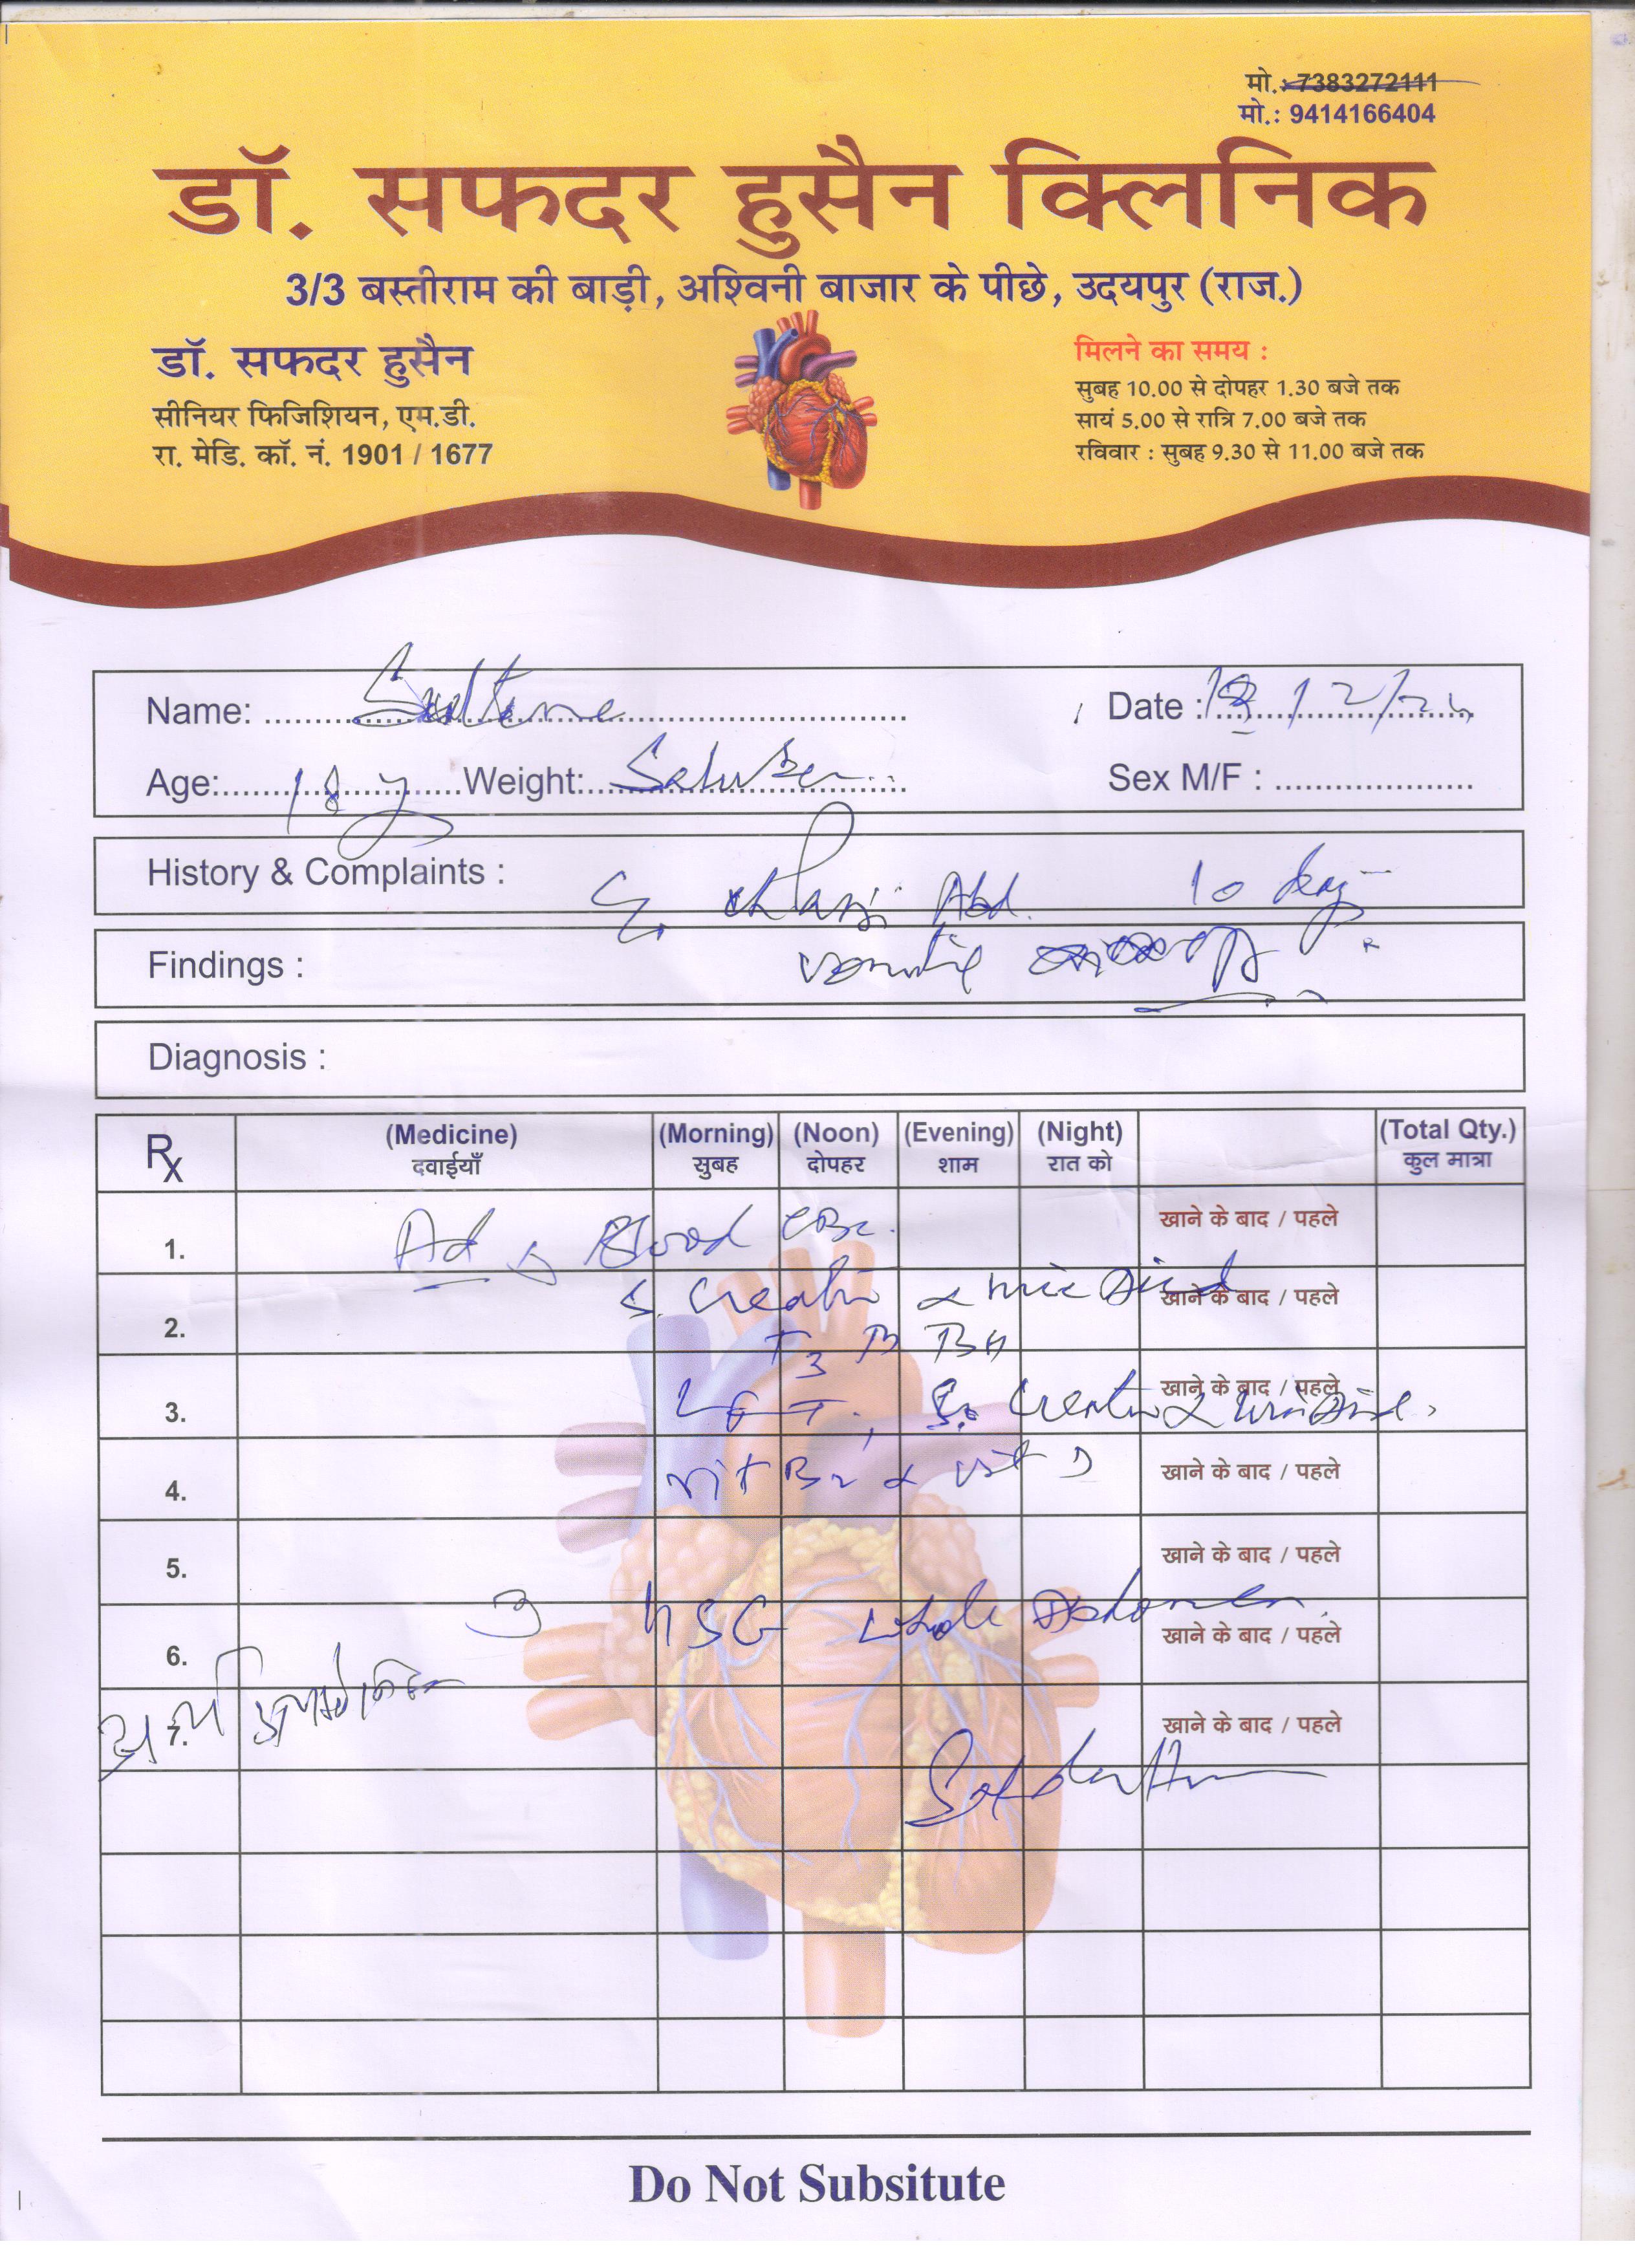 मो.: 7383272111
मो.: 9414166404
डॉ. सफदर हुसैन क्लिनिक
3/3 बस्तीराम की बाड़ी, अश्विनी बाजार के पीछे, उदयपुर (राज.)
डॉ. सफदर हुसैन
सीनियर फिजिशियन, एम.डी.
रा. मेडि. कॉ. नं. 1901 / 1677
मिलने का समय :
सुबह 10.00 से दोपहर 1.30 बजे तक
सायं 5.00 से रात्रि 7.00 बजे तक
रविवार : सुबह 9.30 से 11.00 बजे तक
Name: Date :
Age: 18 y Weight: Sex M/F :
History & Complaints : Pain Abd. 10 day
Findings :
Diagnosis :
Rx (Medicine) (Morning) (Noon) (Evening) (Night) (Total Qty.)
दवाईयाँ सुबह दोपहर शाम रात को कुल मात्रा
1. Ad Blood CBC खाने के बाद / पहले
S. Creatin & Uric Acid
2. खाने के बाद / पहले
T3 T4 TSH
3. LFT, S. Creatin & Uric Acid खाने के बाद / पहले
4. Vit B12 & Vit D खाने के बाद / पहले
5. खाने के बाद / पहले
USG whole Abdomen
6. खाने के बाद / पहले
7. खाने के बाद / पहले
Do Not Subsitute